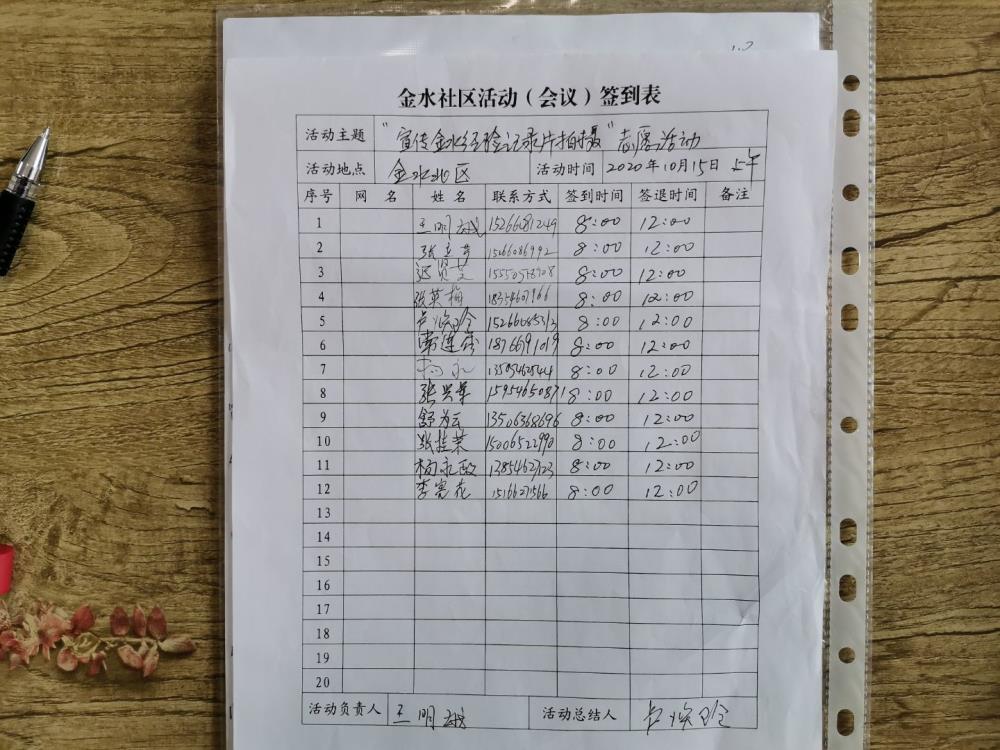 金水社区活动（会议）签到表
活动主题 "宣传金水经验记录片拍摄"志愿活动
活动地点 金水社区 活动时间 2020年10月15日 上午
序号 网 名 姓 名 联系方式 签到时间 签退时间 备注
1 王明 15266081249 8:00 12:00
2 张 15266086992 8:00 12:00
3 8:00 12:00
4 张英梅 8:00 12:00
5 卢焕玲 15266085313 8:00 12:00
6 18766791019 8:00 12:00
7 杨永 8:00 12:00
8 张兴華 15954650871 8:00 12:00
9 舒为云 13506368696 8:00 12:00
10 张桂荣 15006522990 8:00 12:00
11 杨永政 8:00 12:00
12 李宪花 8:00 12:00
13
14
15
16
17
18
19
20
活动负责人 王明 活动总结人 卢焕玲